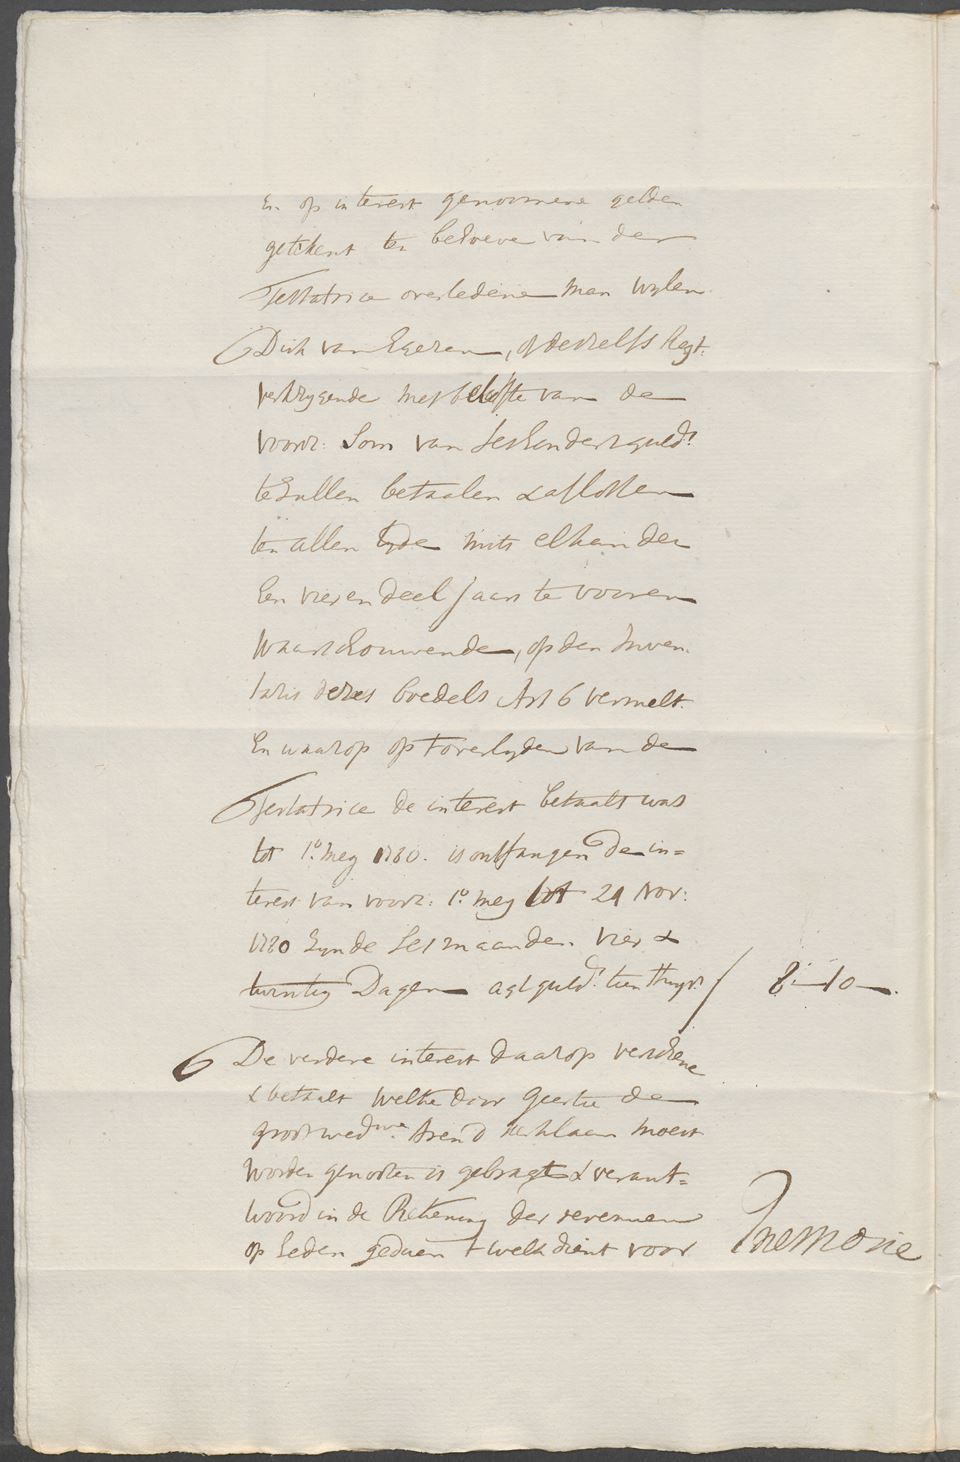 En op interest genoomene gelden
getekent ten behoeve van der
Testatrice overledene man wylen
Dirk van Egeren, of deszelfs Regt.
verkrygende met belofte van de
voorz: Som van Seshondert guld.s
te Zullen betaalen & aflossen
ten allen tyde mits elkander
Een vierendeel Jaars te vooren
waarschouwende, op den Inven.
taris dezes boedels Art 6 vermelt.
En waarop op t overlyden van de
Testatrice de interest betaalt was
tot 1.o mey 1780. is ontfangen de in=
terest van voorz: 1.o mey tot 24 Nov:
1780 Zynde Ses maanden vier &
twintig Dagen agt guld.s tien stuyv.s 8-10-.
De verdere interest daarop verschene
& betaalt welke door Geertie de
groot wed.we Arend molen moest
worden genooten is gebragt & verant=
woord in de Rekening der revenuen
op heden gedaen t welk dient voor Memorie